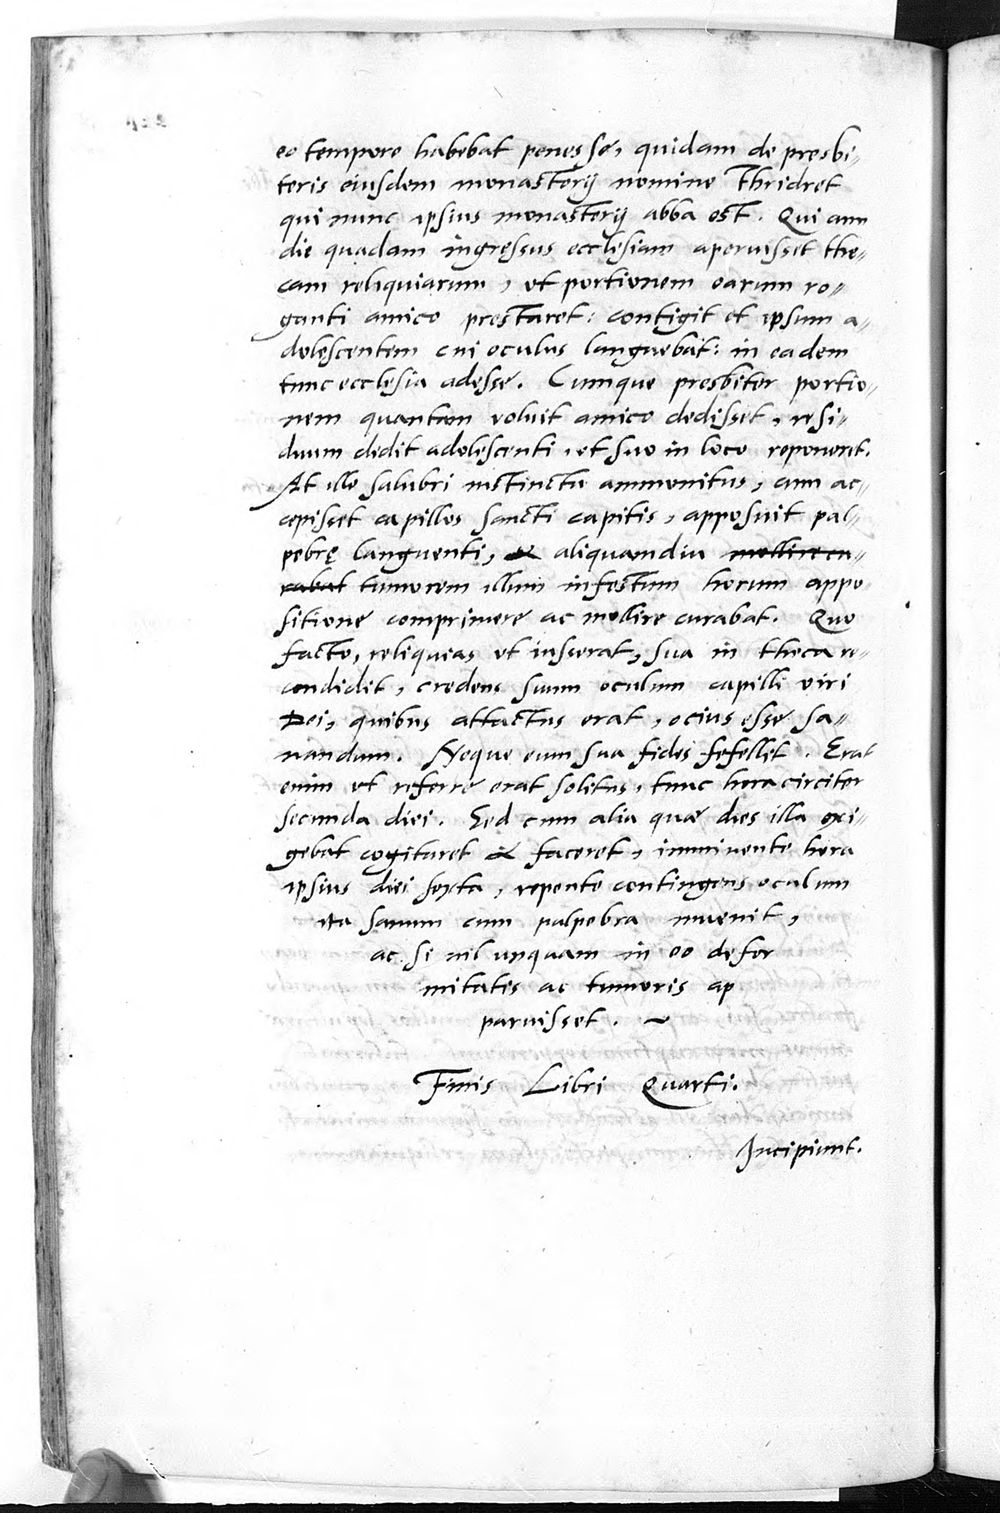 eo tempore habebat penes se, quidam de presbi-
teris eiusdem monasterij nomine Thridret
qui nunc ipsius monasterij abba est. Qui cum
die quadam ingressus ecclesiam aperuisset the-
cam reliquiarum, ut portionem earum ro-
ganti amico prestaret: contigit et ipsum a-
dolescentem cui oculus languebat: in eadem
tunc ecclesia adesse. Cumque presbiter portio-
nem quantam voluit amico dedisset, resi-
duum dedit adolescenti, ut suo in loco reponeret.
At ille salubri instinctu ammonitus, cum ac-
cepisset capillos sancti capitis, apposuit pal-
pebrę languenti, & aliquandiu mollire cu-
rabat tumorem illum infestum horum appo
sitione comprimere ac mollire curabat. Quo
facto, reliquias ut iusserat, sua in theca re-
condidit, credens suum oculum capilli viri
Dei, quibus attactus erat, ocius esse sa-
nandum. Neque eum sua fides fefellit. Erat
enim ut referre erat solitus, tunc hora circiter
secunda diei. Sed cum alia quæ dies illa exi-
gebat cogitaret & faceret, imminente hora
ipsius diei sexta, repente contingens oculum
ita sanum cum palpebra invenit,
ac si nil unquam in eo defor
mitatis ac tumoris ap
paruisset.
Finis Libri Quarti.
Incipiunt.